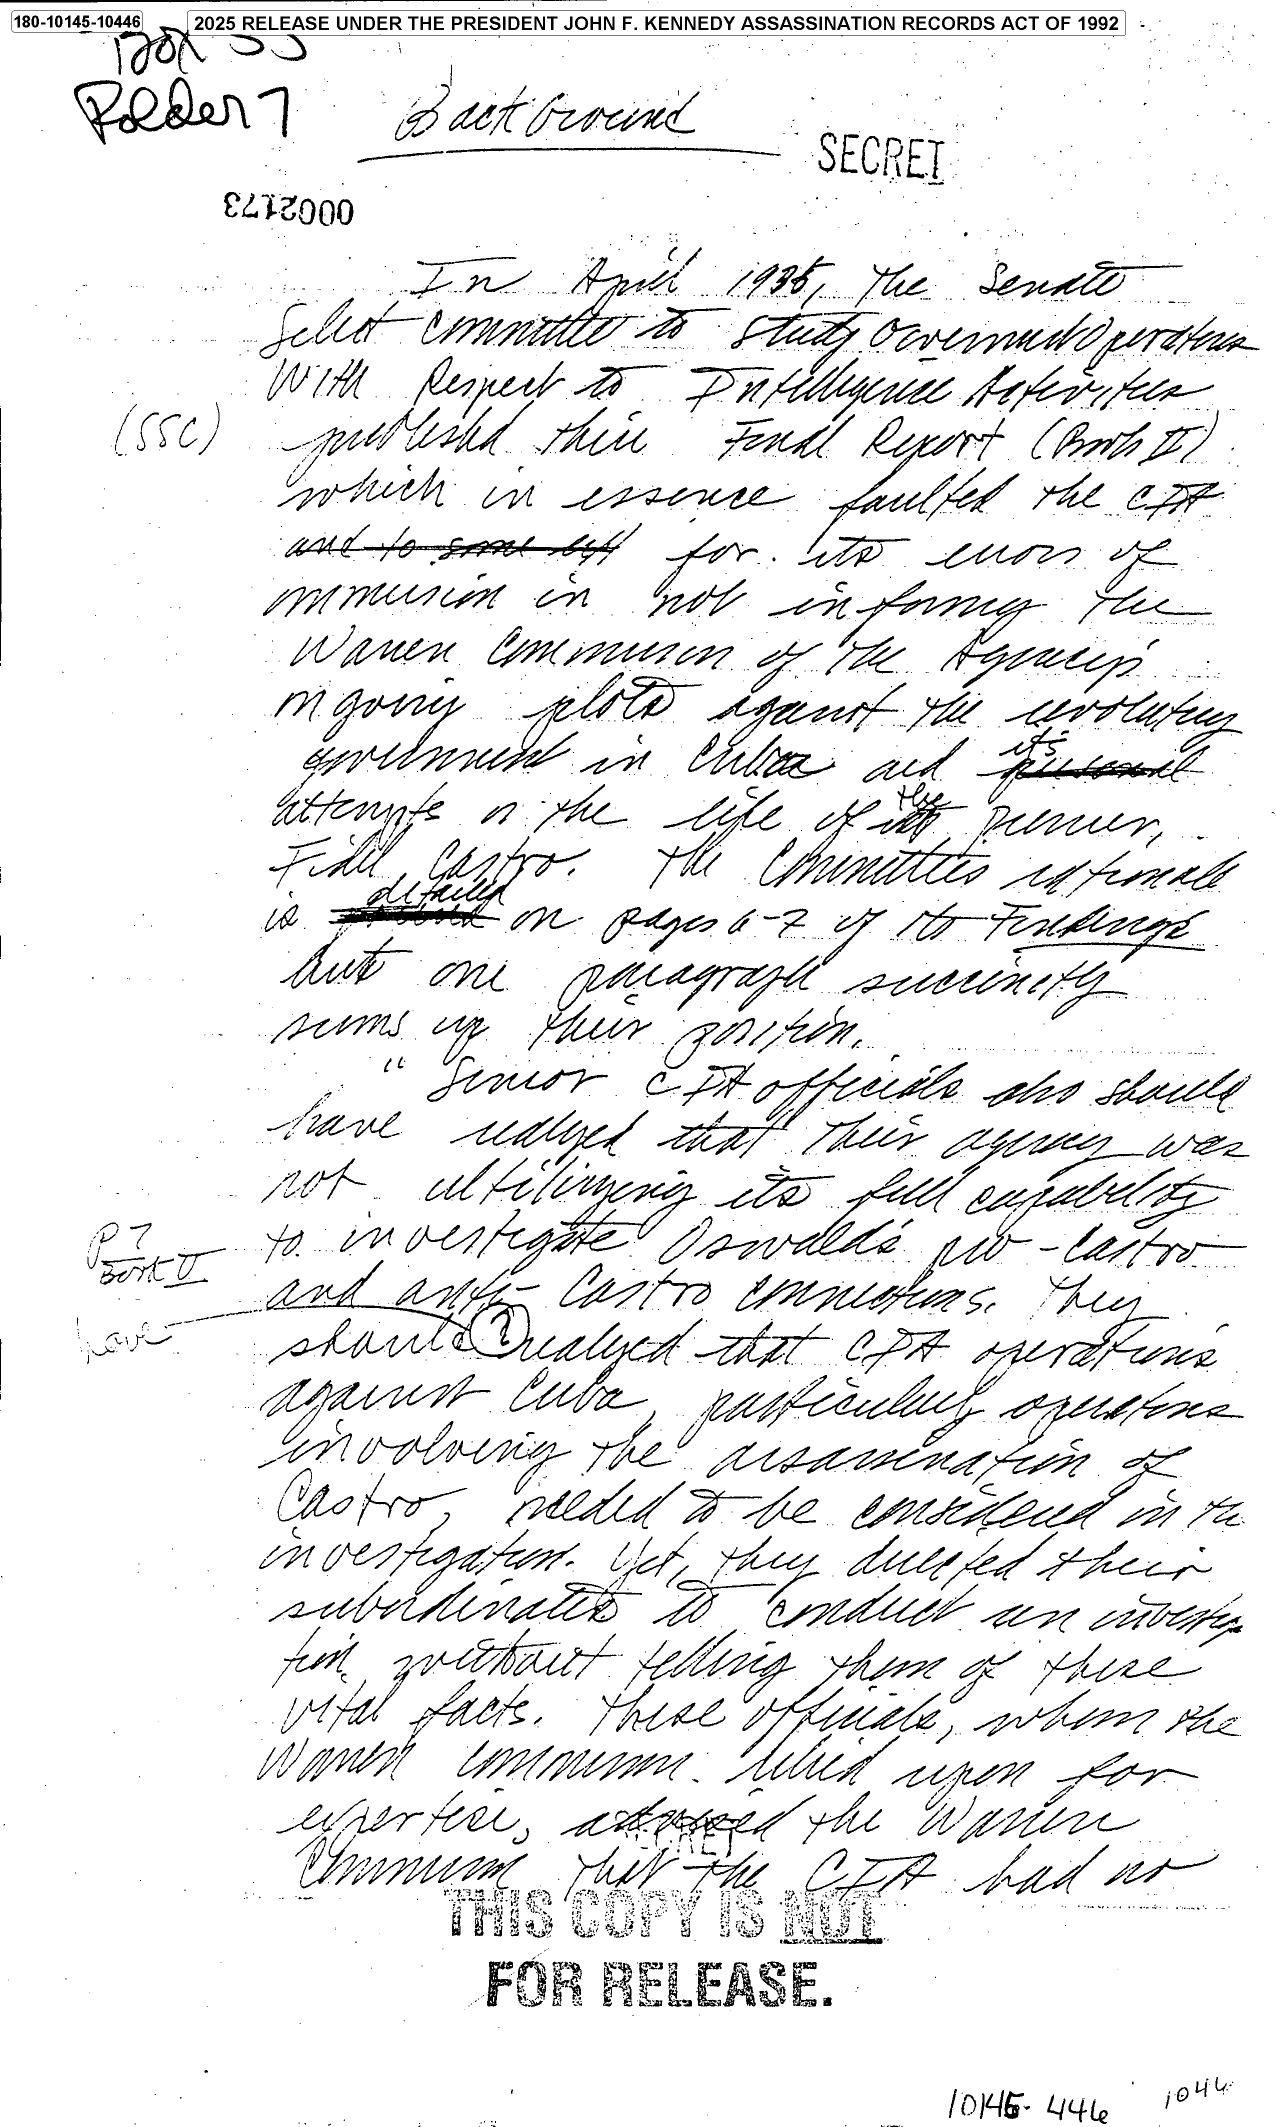 180-10145-10446
2025 RELEASE UNDER THE PRESIDENT JOHN F. KENNEDY ASSASSINATION RECORDS ACT OF 1992
Box
Folder 7
BackGround
SECRET
0002173
In April the Senate
Select Committee to Study Government Operations
With Respect to Intelligence Activities
(SSC)
published their Final Report (Book II)
which in essence faulted the CIA
and to some for its errors of
ommission in not informing the
Warren Commission of the Agency's
ongoing plots against the revolutionary
government in Cuba and its personal
attempts on the life of the premier,
Fidel Castro. The Committee's rationale
is detailed on pages 6-7 of its Findings
but one paragraph succinctly
sums up their position.
" Senior CIA officials also should
have realized that their agency was
not ultilizing its full capability
to investigate Oswald's pro-Castro
P 7
Book II
and anti-Castro connections. They
have
should realized that CIA operations
against Cuba, particularly operations
involving the assassination of
Castro, needed to be considered in the
investigation. Yet, they directed their
subordinates to conduct an investiga
tion without telling them of these
vital facts. These officials, whom the
Warren Commission relied upon for
expertise, advised the Warren
Commission that the CIA had no
THIS COPY IS NOT
FOR RELEASE.
10145-446
1044